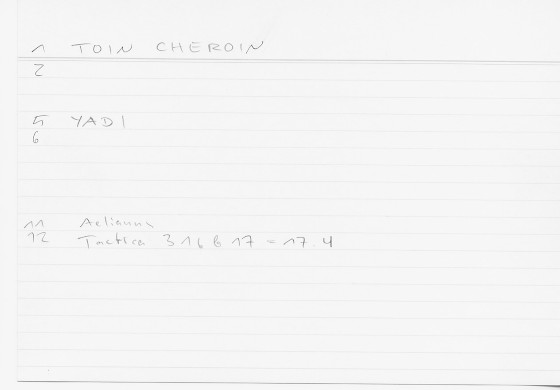 1 TOIN CHEROIN
2
5 YADI
6
11 Aelianus
12 Tactica 316 B 17 = 17.4